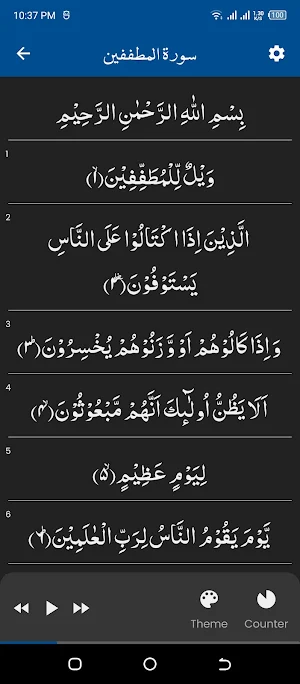 10:37 PM
1.30 K/S
100
سورة المطففين
بِسْمِ اللّٰهِ الرَّحْمٰنِ الرَّحِيْمِ
1
وَيْلٌ لِّلْمُطَفِّفِيْنَ ﴿۱﴾
2
الَّذِيْنَ اِذَا اكْتَالُوْا عَلَى النَّاسِ
يَسْتَوْفُوْنَ ﴿۲﴾
3
وَ اِذَا كَالُوْهُمْ اَوْ وَّزَنُوْهُمْ يُخْسِرُوْنَ ﴿۳﴾
4
اَلَا يَظُنُّ اُولٰٓئِكَ اَنَّهُمْ مَّبْعُوْثُوْنَ ﴿۴﴾
5
لِيَوْمٍ عَظِيْمٍ ﴿۵﴾
6
يَّوْمَ يَقُوْمُ النَّاسُ لِرَبِّ الْعٰلَمِيْنَ ﴿۶﴾
Theme
Counter